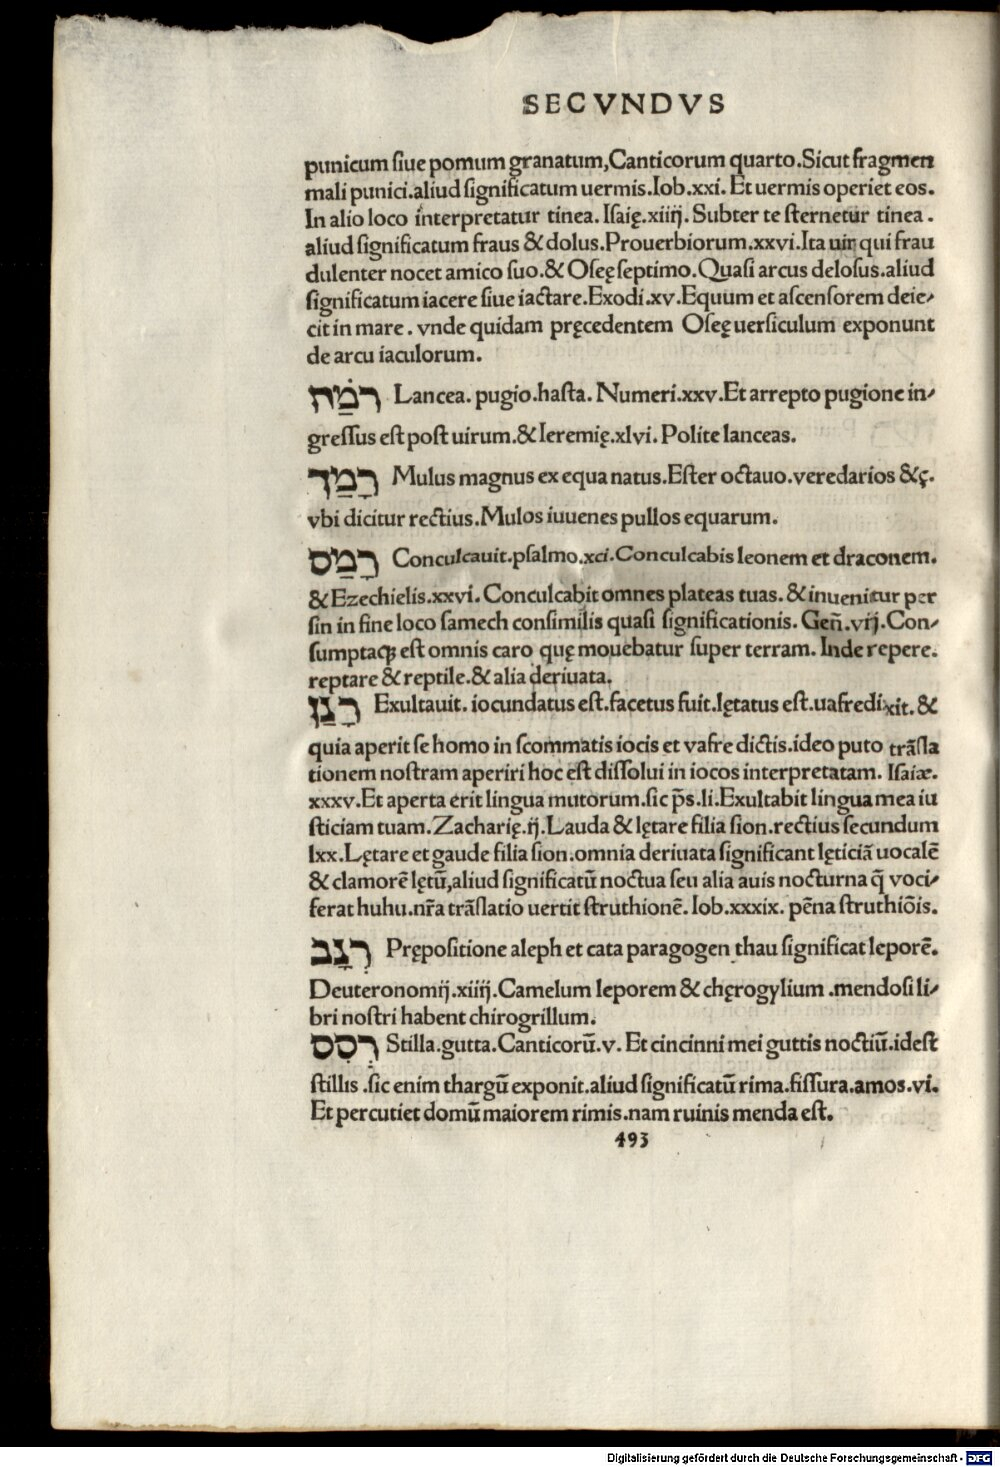 SECVNDVS
punicum ſiue pomum granatum,Canticorum quarto.Sicut fragmen
mali punici.aliud ſignificatum uermis.Iob.xxi. Et uermis operiet eos.
In alio loco interpretatur tinea. Iſaię.xiiij. Subter te ſternetur tinea.
aliud ſignificatum fraus & dolus.Prouerbiorum.xxvi.Ita uir qui frau
dulenter nocet amico ſuo.& Oſeę ſeptimo.Quaſi arcus deloſus.aliud
ſignificatum iacere ſiue iactare.Exodi.xv.Equum et aſcenſorem deie⸗
cit in mare. vnde quidam pręcedentem Oſeę uerſiculum exponunt
de arcu iaculorum.
רֹמַח Lancea. pugio.haſta. Numeri.xxv.Et arrepto pugione in⸗
greſſus eſt poſt uirum.& Ieremię.xlvi. Polite lanceas.
רָמַךְ Mulus magnus ex equa natus.Eſter octauo.veredarios &ç.
vbi dicitur rectius.Mulos iuuenes pullos equarum.
רָמַס Conculcauit.pſalmo.xci.Conculcabis leonem et draconem.
& Ezechielis.xxvi. Conculcabit omnes plateas tuas. & inuenitur per
ſin in fine loco ſamech conſimilis quaſi ſignificationis. Geñ.vij.Con⸗
ſumptaqꝫ eſt omnis caro quę mouebatur ſuper terram. Inde repere.
reptare & reptile.& alia deriuata.
רָנַן Exultauit. iocundatus eſt.facetus fuit.lętatus eſt.uafredixit. &
quia aperit ſe homo in ſcommatis iocis et vafre dictis.ideo puto trãſla
tionem noſtram aperiri hoc eſt diſſolui in iocos interpretatam. Iſaiæ.
xxxv.Et aperta erit lingua mutorum.ſic p̃s.li.Exultabit lingua mea iu
ſticiam tuam.Zacharię.ij.Lauda & lętare filia ſion.rectius ſecundum
lxx.Lętare et gaude filia ſion.omnia deriuata ſignificant lęticiã uocalẽ
& clamorẽ lętũ,aliud ſignificatũ noctua ſeu alia auis nocturna q̃ voci⸗
ferat huhu.nr̃a trãſlatio uertit ſtruthionẽ. Iob.xxxix. pẽna ſtruthiõis.
רְנָב Prępoſitione aleph et cata paragogen thau ſignificat leporẽ.
Deuteronomij.xiiij.Camelum leporem & chęrogylium .mendoſi li⸗
bri noſtri habent chirogrillum.
רְסִס Stilla.gutta.Canticorũ.v. Et cincinni mei guttis noctiũ.ideſt
ſtillis .ſic enim thargũ exponit.aliud ſignificatũ rima.fiſſura.amos.vi.
Et percutiet domũ maiorem rimis.nam ruinis menda eſt.
493
Digitalisierung gefördert durch die Deutsche Forschungsgemeinschaft - DFG